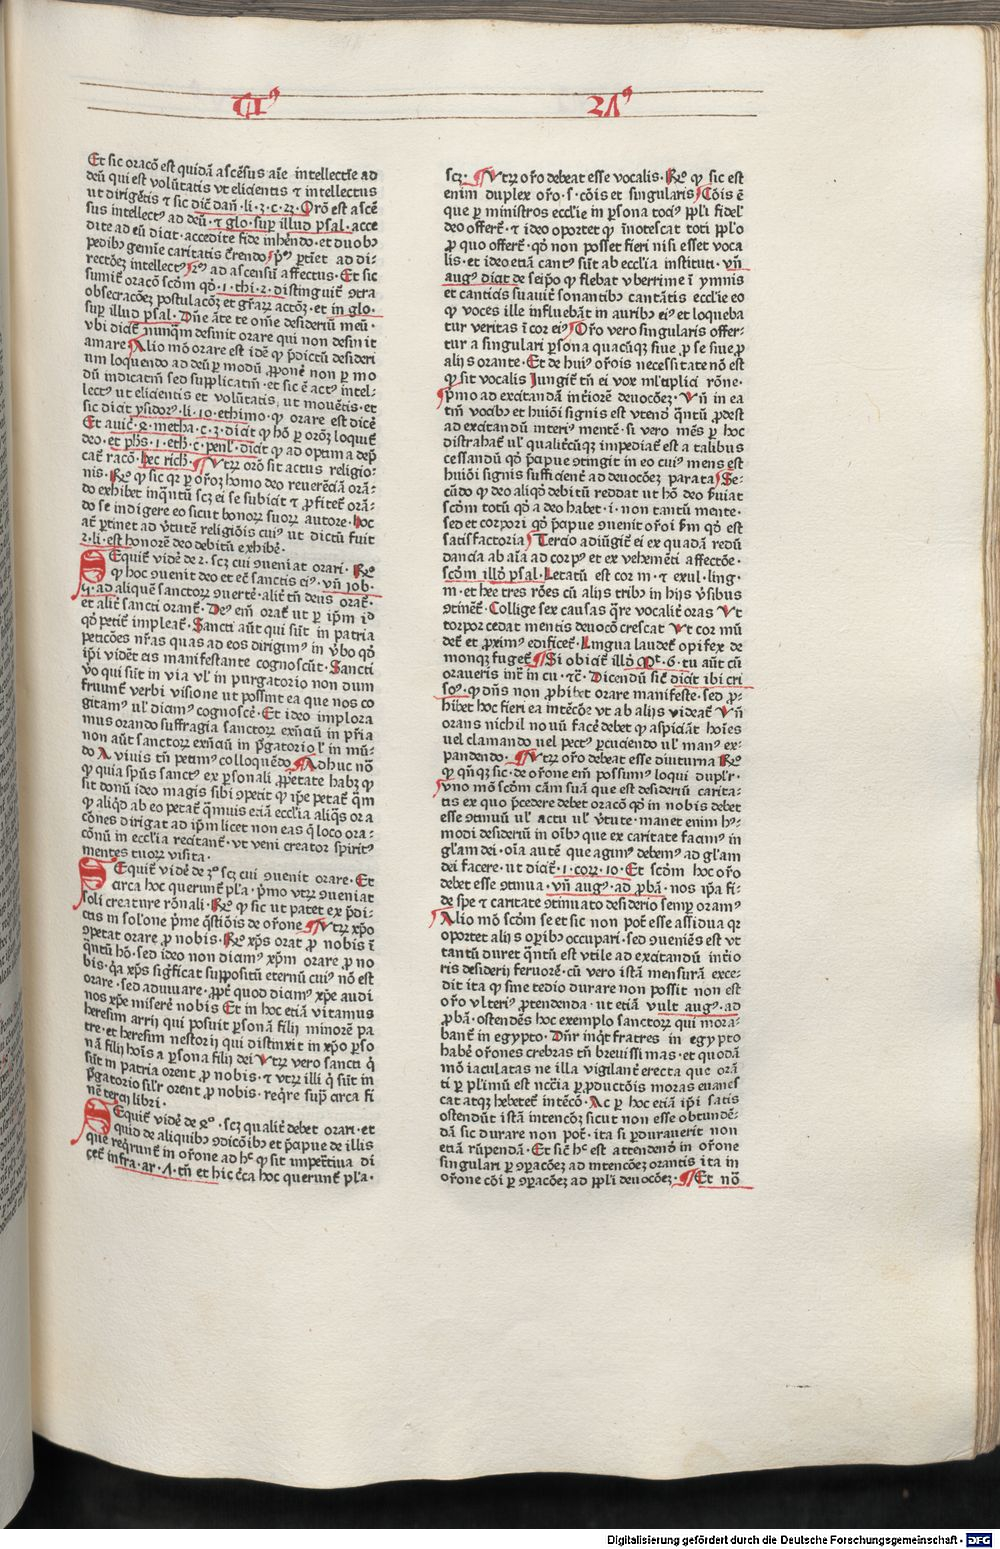 Et sic oracō est quidā ascēsus aīe intellectīe ad
deū qui est volūtatis vt elicientis ⁊ intellectus
ut dirigētis ⁊ sic dic̄ dan̄ · li · 3 · c · 2ꝛ · Orō est ascē
sus intellectꝰ ad deū · ⁊ glo · sup̱ illud psal · acce
dite ad eū dicit · accedite fide inhēndo · et duobꝫ
pedibꝰ gemīe caritatis c̄rendo pꝰ p̱tīet ad di-
rectōeꝫ intellectꝰ · 2ꝰ ad ascensū affectus · Et sic
sumit̄ oracō scōm qđ · 1 · thi · 2 · distinguit̄ ꝯtra
obsecracōeꝫ postulacōꝫ et gr̄aꝝ actōꝫ · et in glo ·
sup̱ illud psal · Dn̄e āte te om̄e desideriū meū ·
vbi dicit̄ nunq̄m desinit orare qui non desinit
amare Alio mō orare est idē ꝙ p̄dictū desideri
um loquendo ad deū p̱ modū ꝓponē non p̱ mo
dū indicatīn̄ sed supplicatīn̄ · et sic ē actꝰ intel-
lectꝰ ut elicientis et volūtatis, ut mouētis · et
sic dicit ysidorꝰ · li · 10 · ethimo · ꝙ orare est dicē
Et auic̄ · ꝯ · metha · c · 3 · dicit ꝙ hō p̱ orōꝫ loquit̄
deo · et ph̄s · 1 · eth̄ · c · penl̄ · dicit ꝙ ad optima dep̄
cat̄ racō · hec rich̄ · Vtꝝ orō sit actus religio-
nis · Rꝰ ꝙ sic qꝛ p̱ or̄oꝫ homo deo reuerēciā orā-
do exhibet inq̄ntū scꝫ ei se subicit ⁊ ꝓfitet̄ orā-
do se indigere eo sicut bonoꝝ suoꝝ autore · hoc
at̄ p̱tinet ad v̄tutē religiōis cuiꝰ ut dictū fuit
2 · li · est honorē deo debitū exhibē ·
SEquit̄ vidē de 2 · scꝫ cui ꝯueniat orari · Rꝰ
ꝙ hoc ꝯuenit deo et eē sanctis eiꝰ · vn̄ iob ·
5 · ad aliquē sanctoꝝ ꝯuertē · alit̄ tn̄ deus orat̄ ·
et alit̄ sancti orant̄ · Deꝰ em̄ orat̄ ut p̱ ip̄m id
qđ petit̄ impleat̄ · Sancti aūt qui sūt in patria
peticōes nr̄as quas ad eos dirigimꝰ in v̄bo qđ
ip̄i vidēt eis manifestante cognoscūt · Sancti
v̄o qui sūt in via vl̄ in purgatorio non dum
fruunt̄ verbi visione ut possint ea que nos co
gitamꝰ ul̄ diamꝰ cognoscē · Et ideo implora
mus orando suffragia sanctoꝝ exn̄ciū in pr̄ia
non aūt sanctoꝝ exn̄ciū in p̱gatorio l̄ in mū-
do A viuis tn̄ petimꝰ colloquēdo Adhuc nō
ꝙ quia sp̄ns sanctꝰ ex p̱sonali ꝓp̄etate habꝫ ꝙ
sit donū ideo magis sibi ꝯpetit ꝙ ip̄e petat̄ q̄m
ꝙ aliq̄d ab eo petat̄ q̄muis etiā eccl̄ia aliq̄s ora
cōnes dirigat ad ip̄m licet non eas q̄ loco ora-
cōnū in eccl̄ia recitant̄ · vt veni creator spiritꝰ
mentes tuoꝝ visita ·
SEquit̄ vidē de 3ꝰ scꝫ cui ꝯuenit orare · Et
circa hoc querunt̄ pl̄a · p̄mo vtꝝ ꝯueniat
soli creature rōnali · Rꝰ ꝙ sic ut patet ex p̄di-
ctis in sol'one p̄me q̄stiōis de or̄one Vtꝝ xp̄o
ꝯpetat orare ꝓ nobis · Rꝰ xp̄s orat ꝓ nobis ī
q̄ntū hō · sed ideo non diamꝰ xp̄m orare ꝓ no
bis · q̄a xp̄s siḡficat suppositū eternū cuiꝰ nō est
orare · sed adiuuare · ꝓpt̄ quod diamꝰ xp̄e audi
nos xp̄e miserē nobis Et in hoc etiā vitamus
heresim arrij qui posuit p̱sonā filij minorē pa
tre · et heresim nestorij qui distinxit in xp̄o p̱so
nā filij hoīs a p̱sona filij dei Vtꝝ vero sancti q̄
sūt in patria orent ꝓ nobis · ⁊ vtꝝ illi q̄ sūt in
p̱gatorio sil'r orent ꝓ nobis · req̄re sup̄ circa fi
nē tercij libri ·
SEquit̄ vidē de ꝯꝰ · scꝫ qualit̄ debet orari · et
quid de aliquibꝰ ꝯdicōibꝫ et p̄cipue de illis
que req̄runt̄ in or̄one ad hc̄ ꝙ sit impet̄tiua di
cet̄ infra · ar · Λ · tn̄ et hic c̄ca hoc querunt̄ pl̄a ·
scꝫ · Vtꝝ or̄o debeat esse vocalis · Rꝰ ꝙ sic est
enim duplex or̄o · s · cōis et singularis Cōis ē
que p̱ ministros eccl̄ie in p̱sona tociꝰ pp̄li fidel̄
deo offert̄ · ⁊ ideo oportet ꝙ īnotescat toti pp̄lo
ꝓ quo offert̄ · qđ non posset fieri nisi esset voca
lis · et ideo etiā cantꝰ sūt ab eccl̄ia instituti · vn̄
augꝰ dicit de seip̄o ꝙ flebat vberrime ī ymnis
et canticis suauit̄ sonantibꝫ cantātis eccl̄ie eo
ꝙ voces ille influebāt in auribꝫ eiꝰ et loqueba
tur veritas ī cor eiꝰ Or̄o vero singularis offer-
tur a singulari p̱sona quacūqꝫ siue ꝓ se siue ꝓ
alijs orante · Et de huiꝰ or̄ois necessitate nō est
ꝙ sit vocalis Iungit̄ tn̄ ei vox ml̄tiplici rōne ·
p̄mo ad excitandā int̄iorē deuocōeꝫ · Vn̄ in ea
tn̄ vocibꝫ et huiōi signis est vtend̄ q̄ntū ꝓdest
ad excitandū interiꝰ mentē · si vero mēs p̱ hoc
distrahat̄ ul̄ qualit̄cūqꝫ impediat̄ est a talibus
cessandū qđ p̄cipue ꝯtingit in eo cuiꝰ mens est
huiōi signis sufficient̄ ad deuocōeꝫ parata Se-
cūdo ꝙ deo aliqđ debitū reddat ut hō deo s̄uiat
scōm totū qđ a deo habet · i · non tantū mente ·
sed et corpori qđ p̄cipue ꝯuenit or̄oi s̄m qđ est
satisfactoria Tercio adiūgit̄ ei ex quadā redū
dancia ab aīa ad corpꝰ et ex vehemēti affectōe ·
scōm illđ psal · Letatū est cor m · ⁊ exul · ling ·
m · et hee tres rōes cū alijs tribꝫ in hijs v̄sibus
ꝯtinēt̄ · Collige sex causas q̄re vocalit̄ oras Vt
torpor cedat mentis deuocō crescat Vt cor mū
det̄ et ꝓximꝰ edificet̄ · Lingua laudet̄ opifex de
monqꝫ fuget̄ Si obicit̄ illđ Mt̄ · 6 · tu aūt cū
oraueris int̄ in cu · ⁊c̄ · Dicendū sic̄ dicit ibi cri
soꝰ · ꝙ dn̄s non ꝓhibet orare manifeste · sed ꝓ-
hibet hoc fieri ea intēcōꝫ vt ab alijs videat̄ Vn̄
orans nichil nouū facē debet ꝙ aspiciāt hoīes
uel clamando uel pectꝰ p̱cuciendo ul̄ manꝰ ex-
pandendo · Vtꝝ or̄o debeat esse diuturna Rꝰ
ꝙ qn̄qꝫ sic · de or̄one em̄ possumꝰ loqui dupl'r ·
vno mō scōm cām suā que est desideriū carita-
tis ex quo p̄cedere debet oracō qđ in nobis debet
esse ꝯtinuū ul̄ actu ul̄ v̄tute · manet enim hꝰ-
modi desideriū in oībꝫ que ex caritate facimꝰ in
gl̄am dei · oīa autē que agimꝰ debemꝰ ad gl̄am
dei facere · ut dicit̄ · 1 · corꝝ · 10 · Et scōm hoc or̄o
debet esse ꝯtinua · vn̄ augꝰ · ad ꝓbā · nos ip̄a fi-
de spe ⁊ caritate ꝯtinuato desiderio semp̱ oramꝰ
Alio mō scōm se et sic non pōt esse assidua qꝛ
oportet alijs op̱ibꝫ occupari · sed ꝯueniēs est vt
tantū duret q̄ntū est vtile ad excitandū int̄io
ris desiderij feruorē · cū vero istā mensurā exce-
dit ita ꝙ sine tedio durare non possit non est
or̄o vlteriꝰ ꝓtendenda · ut etiā vult augꝰ · ad
ꝓbā · ostendēs hoc exemplo sanctoꝝ qui mora-
bant̄ in egypto · Dn̄r inq̄t fratres in egypto
habē or̄ones crebras tn̄ breuissimas · et quodā
mō iaculatas ne illa vigilant̄ erecta que orā
ti p̱ p̱limū est nccīa p̱ ꝓductōis moras euanes
cat atqꝫ hebetet̄ intēcō · Ac p̱ hoc etiā ip̄i satis
ostendūt istā intencōꝫ sicut non esse obtundē-
dā sic durare non pōt · ita si p̱durauerit non
etiā rūpendā · Et sic hc̄ est attendend̄ in or̄one
singulari p̱ ꝯp̱acōeꝫ ad intencōeꝫ orantis ita in
or̄one cōi p̱ ꝯp̱acōeꝫ ad pp̄li deuocōeꝫ · Et nō
Digitalisierung gefördert durch die Deutsche Forschungsgemeinschaft · DFG